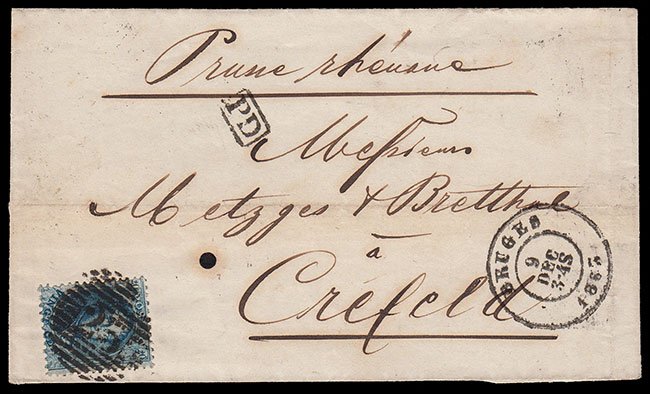 Prusse rhénane
PD
Messieurs
Metzges & Bretthal
à
Crefeld
BRUGES
9
DEC
3-4S
1863